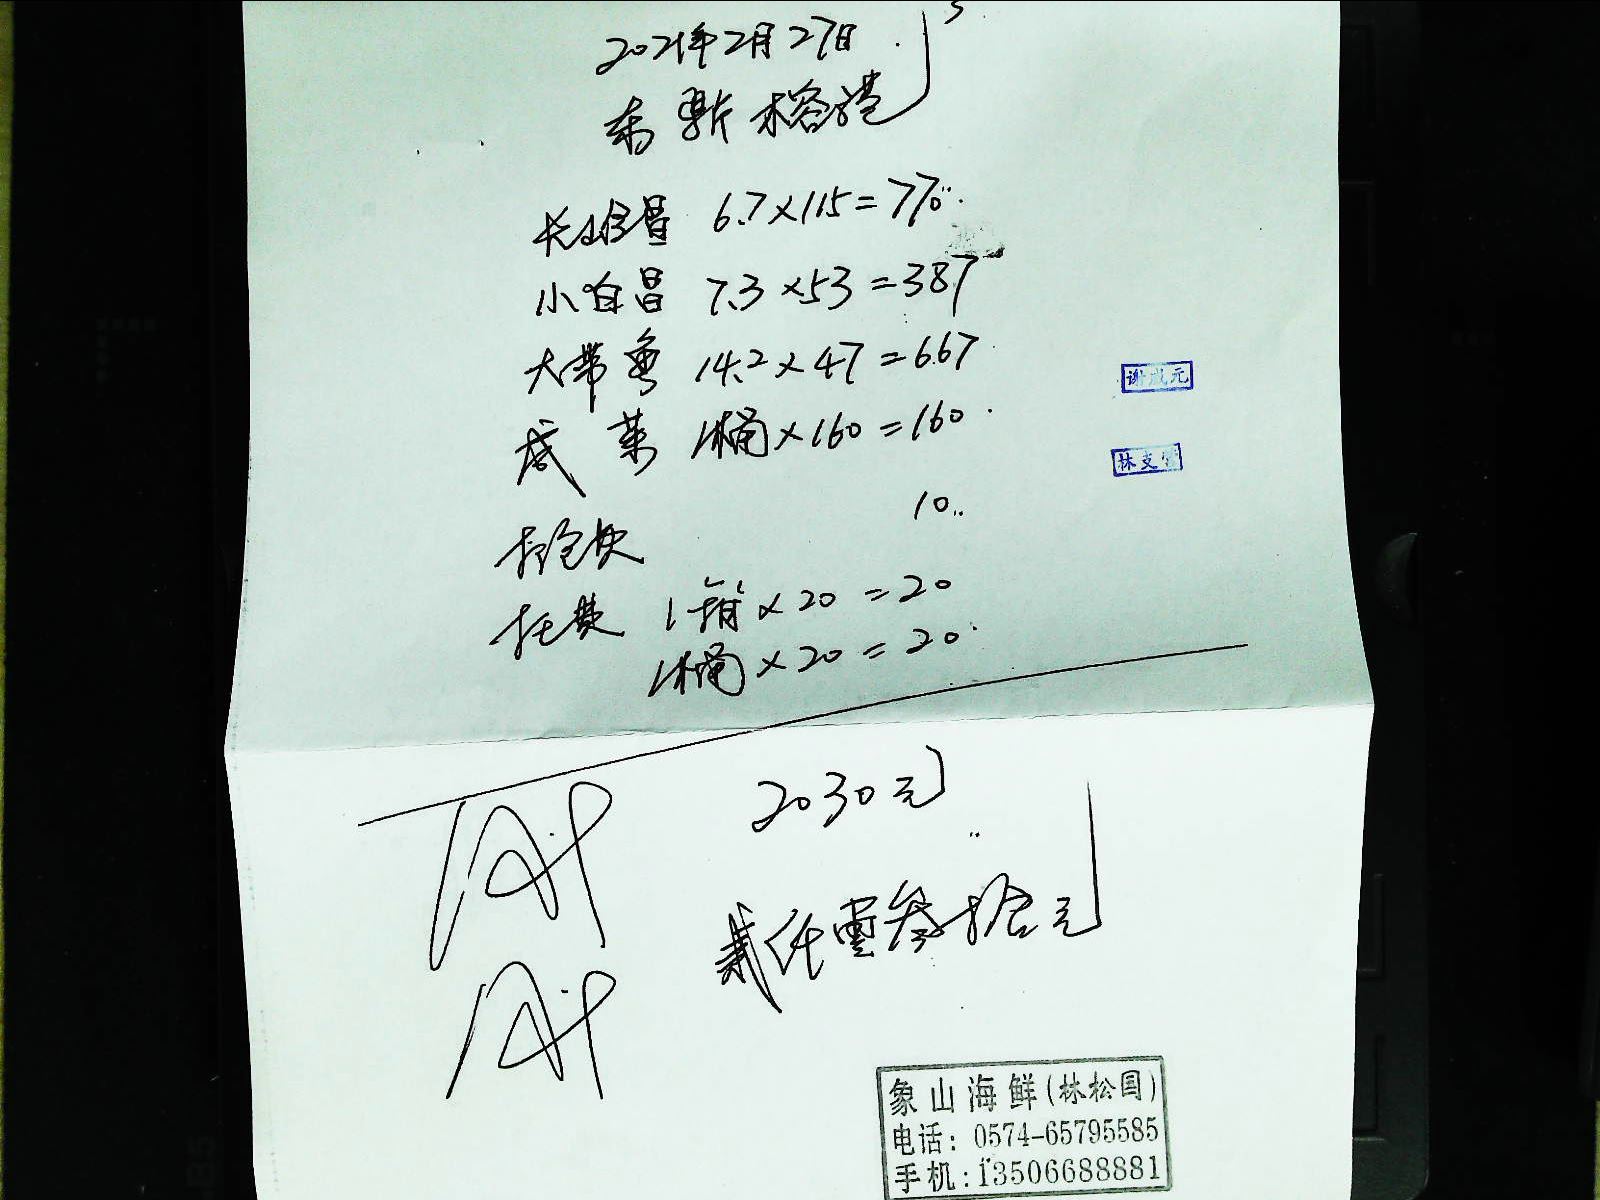 2021年2月27日
东新榕港
长白昌 6.7×115=770
小白昌 7.3×53=387
大带鱼 14.2×47=667
咸菜 1桶×160=160
10
托费 1箱×20=20
1桶×20=20
2030元
贰仟零叁拾元
谢成元
林支
象山海鲜(林松国)
电话:0574-65795585
手机:13506688881